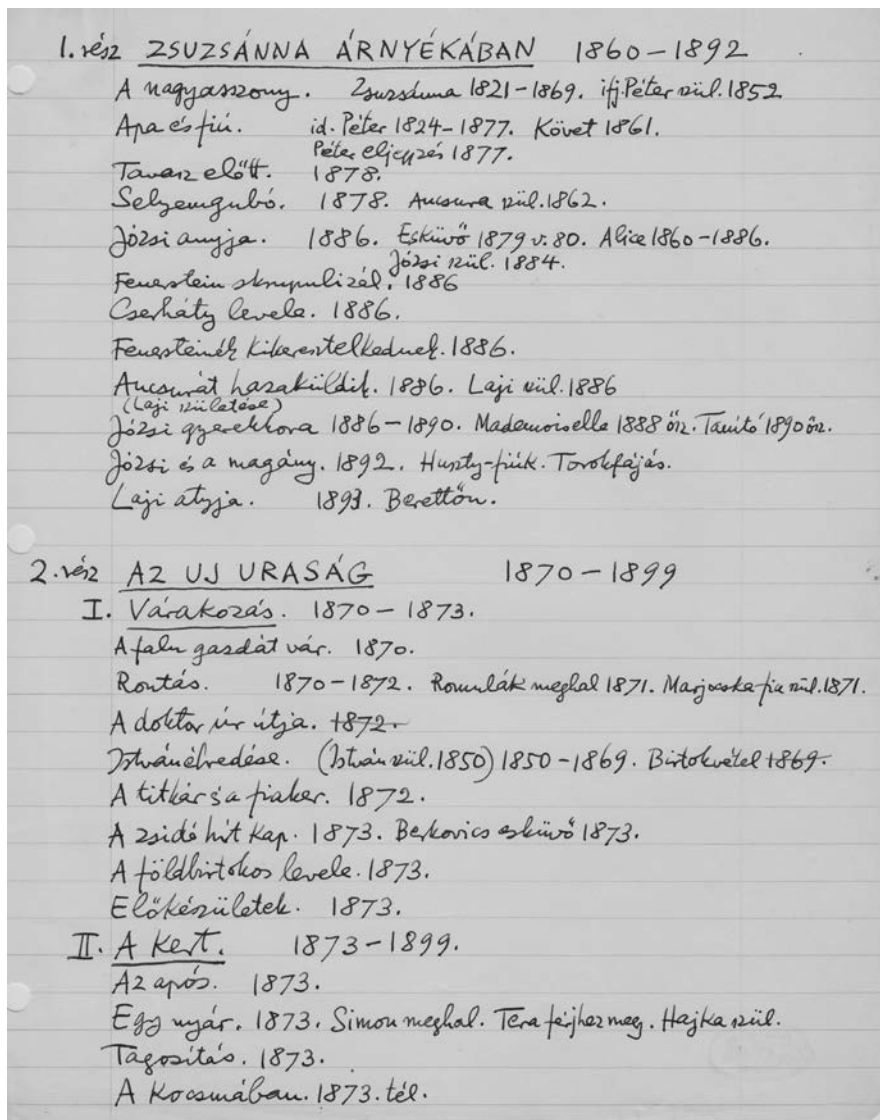 1. rész ZSUZSÁNNA ÁRNYÉKÁBAN 1860-1892
A nagyasszony. Zsuzsánna 1821-1869. ifj. Péter szül. 1852
Apa és fiú. id. Péter 1824-1877. Követ 1861.
Péter eljegyzés 1877.
Tavasz előtt. 1878.
Selyemgubó. 1878. Ancsura szül. 1862.
Józsi anyja. 1886. Esküvő 1879 v. 80. Alice 1860-1886.
Józsi szül. 1884.
Feuerstein skrupulizál. 1886
Cserháty levele. 1886.
Feuersteinék kikeresztelkednek. 1886.
Ancsurát hazaküldik. 1886. Laji szül. 1886
(Laji születése)
Józsi gyerekkora 1886-1890. Mademoiselle 1888 ősz. Tanító 1890 ősz.
Józsi és a magány. 1892. Huszty-fiúk. Torokfájás.
Laji atyja. 1893. Berettőn.
2. rész AZ UJ URASÁG 1870-1899
I. Várakozás. 1870-1873.
A falu gazdát vár. 1870.
Rontás. 1870-1872. Romulák meghal 1871. Marjocska fia szül. 1871.
A doktor úr útja. 1872.
István ébredése. (István szül. 1850) 1850-1869. Birtokvétel 1869.
A titkár s a fiaker. 1872.
A zsidó hírt kap. 1873. Berkovics esküvő 1873.
A földbirtokos levele. 1873.
Előkészületek. 1873.
II. A Kert. 1873-1899.
Az após. 1873.
Egy nyár. 1873. Simon meghal. Tera férjhez meg. Hajka szül.
Tagosítás. 1873.
A Kocsmában. 1873. tél.